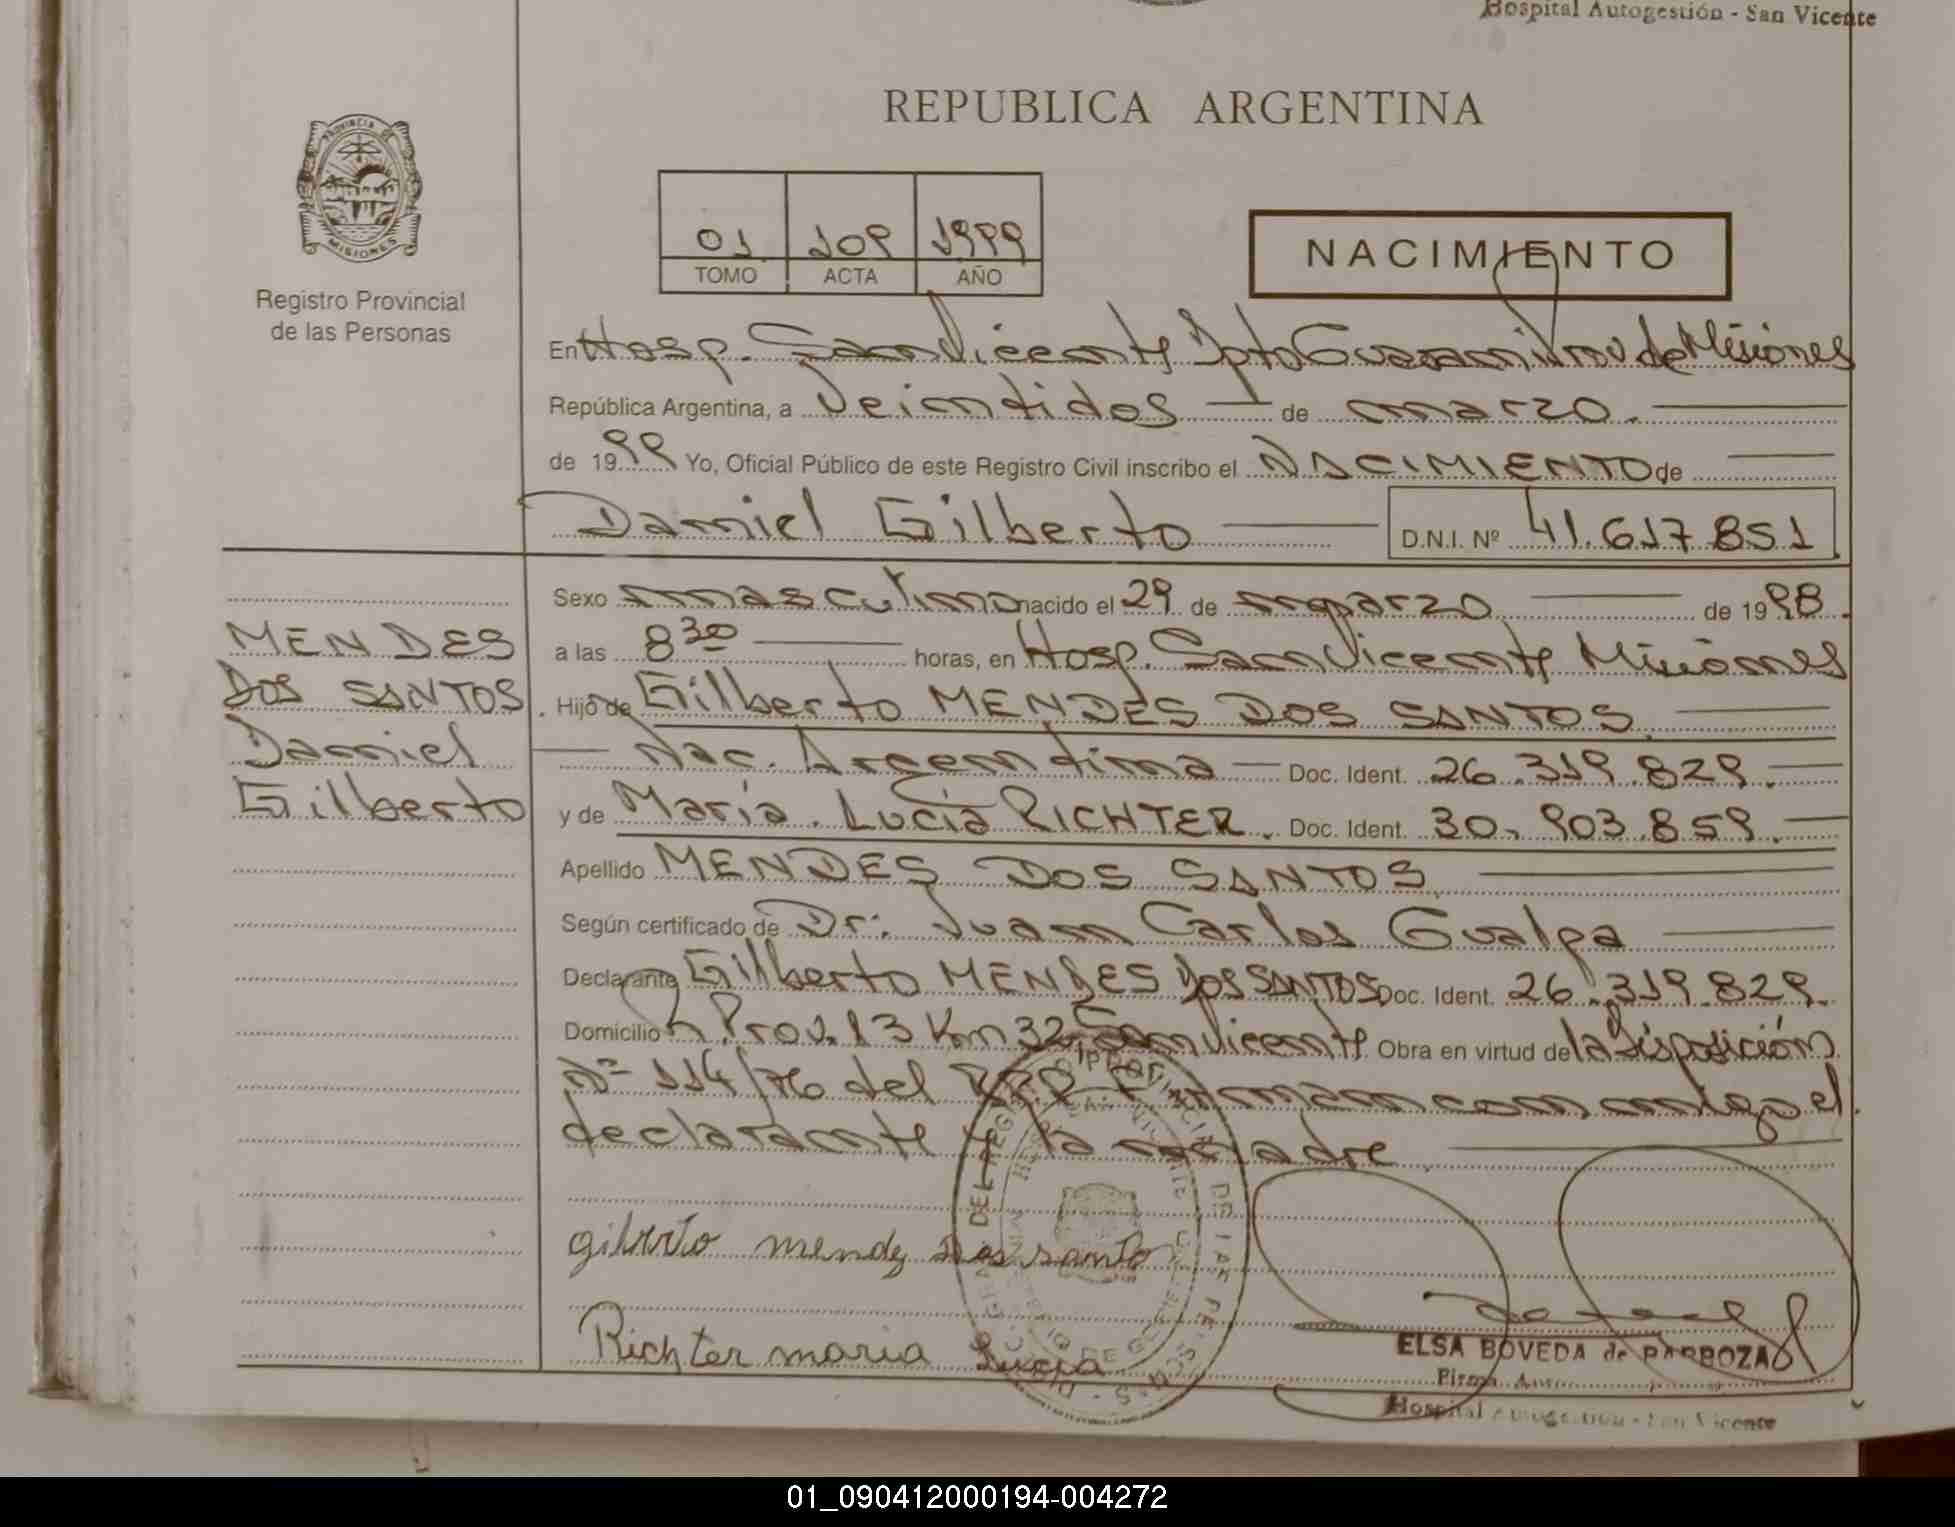 Hospital Autogestión - San Vicente
REPUBLICA ARGENTINA
PROVINCIA DE
MISIONES
Registro Provincial
de las Personas
01 109 1999
TOMO ACTA AÑO
NACIMIENTO
En Hosp. San Vicente Dpto Guarani Prov. de Misiones
República Argentina, a Veintidos de marzo.
de 1999 Yo, Oficial Público de este Registro Civil inscribo el NACIMIENTO de
Daniel Gilberto D.N.I. Nº 41.617.851
MENDES
DOS SANTOS
Daniel
Gilberto
Sexo masculino nacido el 29 de marzo de 1998.
a las 8 30 horas, en Hosp. San Vicente Misiones
Hijo de Gilberto MENDES DOS SANTOS
Nac. Argentina Doc. Ident. 26.319.829.
y de María Lucia RICHTER. Doc. Ident. 30.903.859.
Apellido MENDES DOS SANTOS
Según certificado de Dr. Juan Carlos Gualpa
Declarante Gilberto MENDES DOS SANTOS Doc. Ident. 26.319.829.
Domicilio R. Prov. 13 Km 32 San Vicente. Obra en virtud de la disposición
Nº 114/76 del R.P.P. Firman con migo el
declarante y la madre
gilberto mendes dos santo
Richter maria Lucia
ELSA BOVEDA de BARBOZA
Hospital Autogestión - San Vicente
01_090412000194-004272